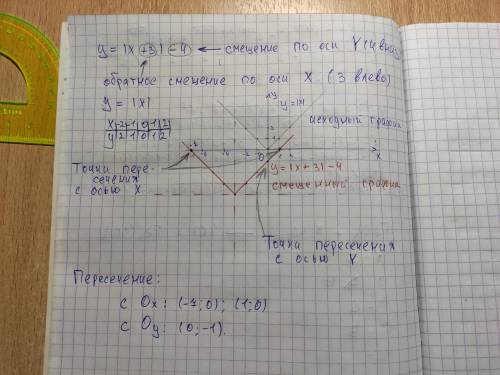 y = |x+3|-4 ← смещение по оси Y (4 вниз)
обратное смещение по оси X (3 влево)
y = |x|
x -2 -1 0 1 2
y 2 1 0 1 2
y
y=|x|
исходный график
x
0
y=|x+3|-4
смещенный график
Точки пере-
сечения
с осью X
Точки пересечения
с осью Y
Пересечение:
с Ox: (-7;0); (1;0)
с Oy: (0;-1).